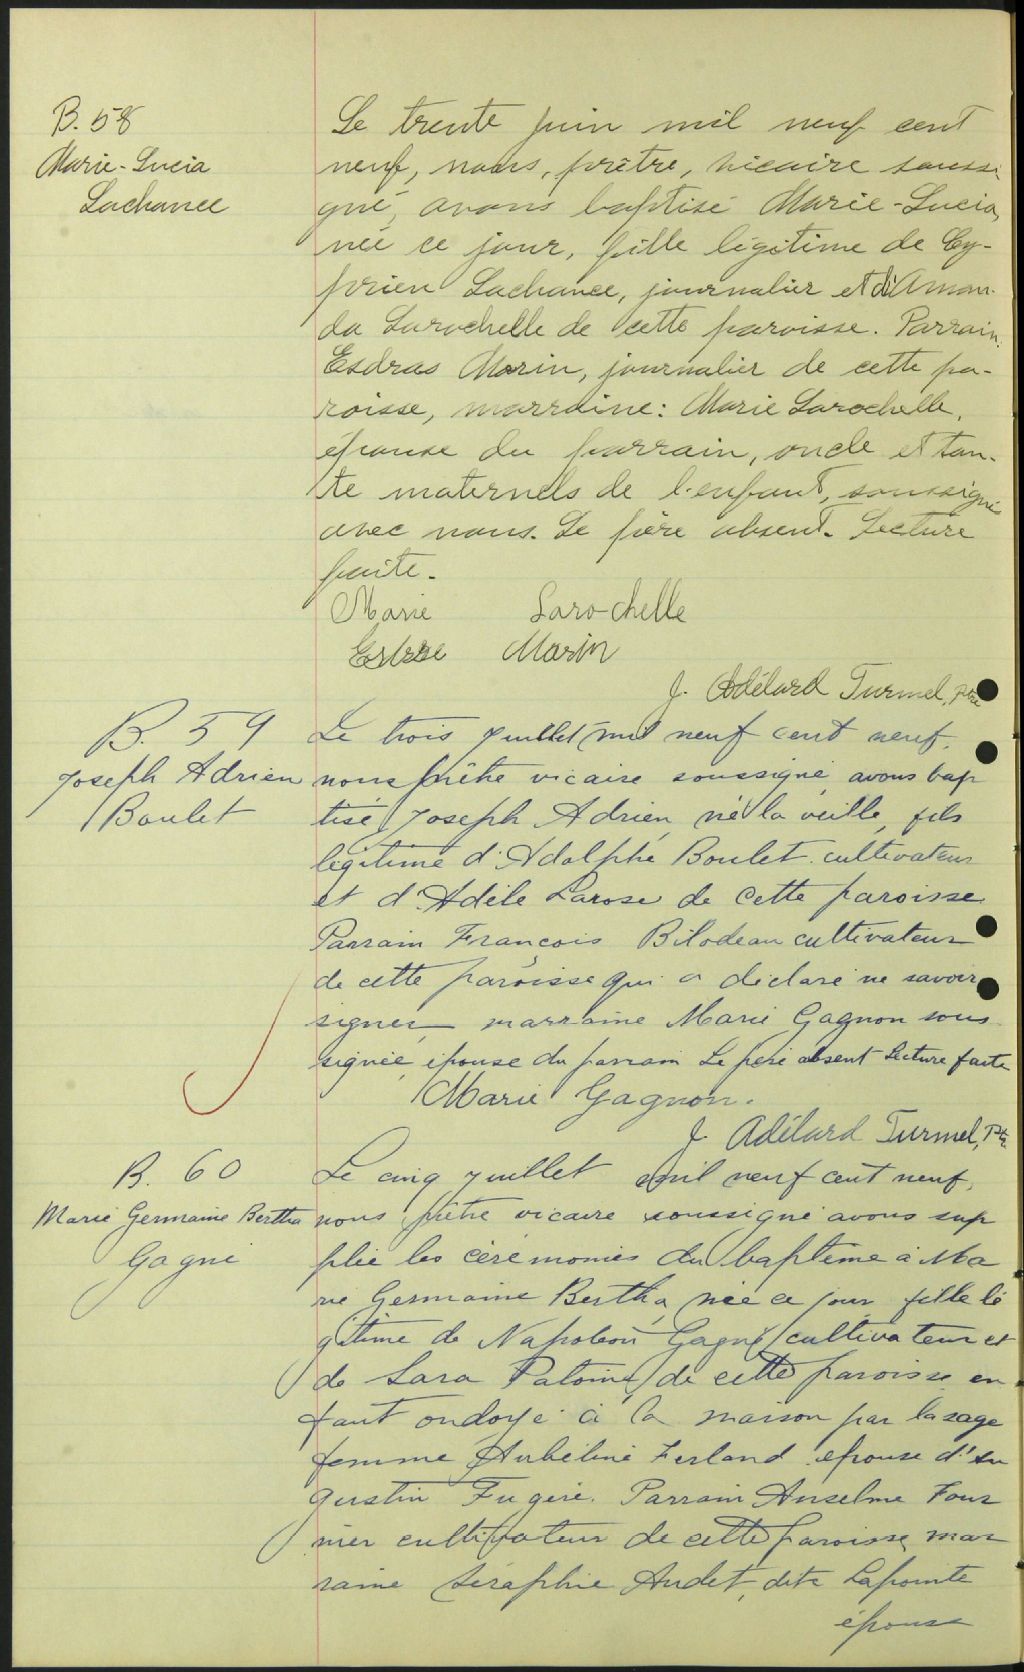 B. 58
Marie-Lucia
Lachance
Le trente juin mil neuf cent
neuf, nous, prêtre, vicaire soussi
gné, avons baptisé Marie-Lucia,
née ce jour, fille légitime de Cy-
prien Lachance, journalier et d'Aman-
da Larochelle de cette paroisse. Parrain:
Esdras Morin, journalier de cette pa-
roisse, marraine: Marie Larochelle,
épouse du parrain, oncle et tan-
te maternels de l'enfant, soussignés
avec nous. Le père absent. Lecture
faite.
Marie Larochelle
Morin
J. Adélard Turmel, Ptre
B. 59
Joseph Adrien
Boulet
Le trois juillet mil neuf cent neuf,
nous prêtre vicaire soussigné, avons bap
tisé Joseph Adrien, né la veille, fils
légitime d'Adolphe Boulet cultivateur
et d'Adèle Larose de cette paroisse
Parrain François Bilodeau cultivateur
de cette paroisse qui a déclaré ne savoir
signer, marraine Marie Gagnon sous
signée, épouse du parrain Le père absent Lecture faite
Marie Gagnon.
J. Adélard Turmel, Ptr
B. 60
Marie Germaine Bertha
Gagné
Le cinq juillet mil neuf cent neuf,
nous prêtre vicaire soussigné avons sup
plié les cérémonies du baptême à Ma
rie Germaine Bertha, née ce jour fille lé
gitime de Napoléon Gagné cultivateur et
de Sara Patoine de cette paroisse en
fant ondoyé à la maison par la sage
femme Ferland épouse d'Au
gustin Fugère. Parrain Anselme Four
nier cultivateur de cette paroisse, mar
raine Séraphie Audet, dite Lapointe
épouse